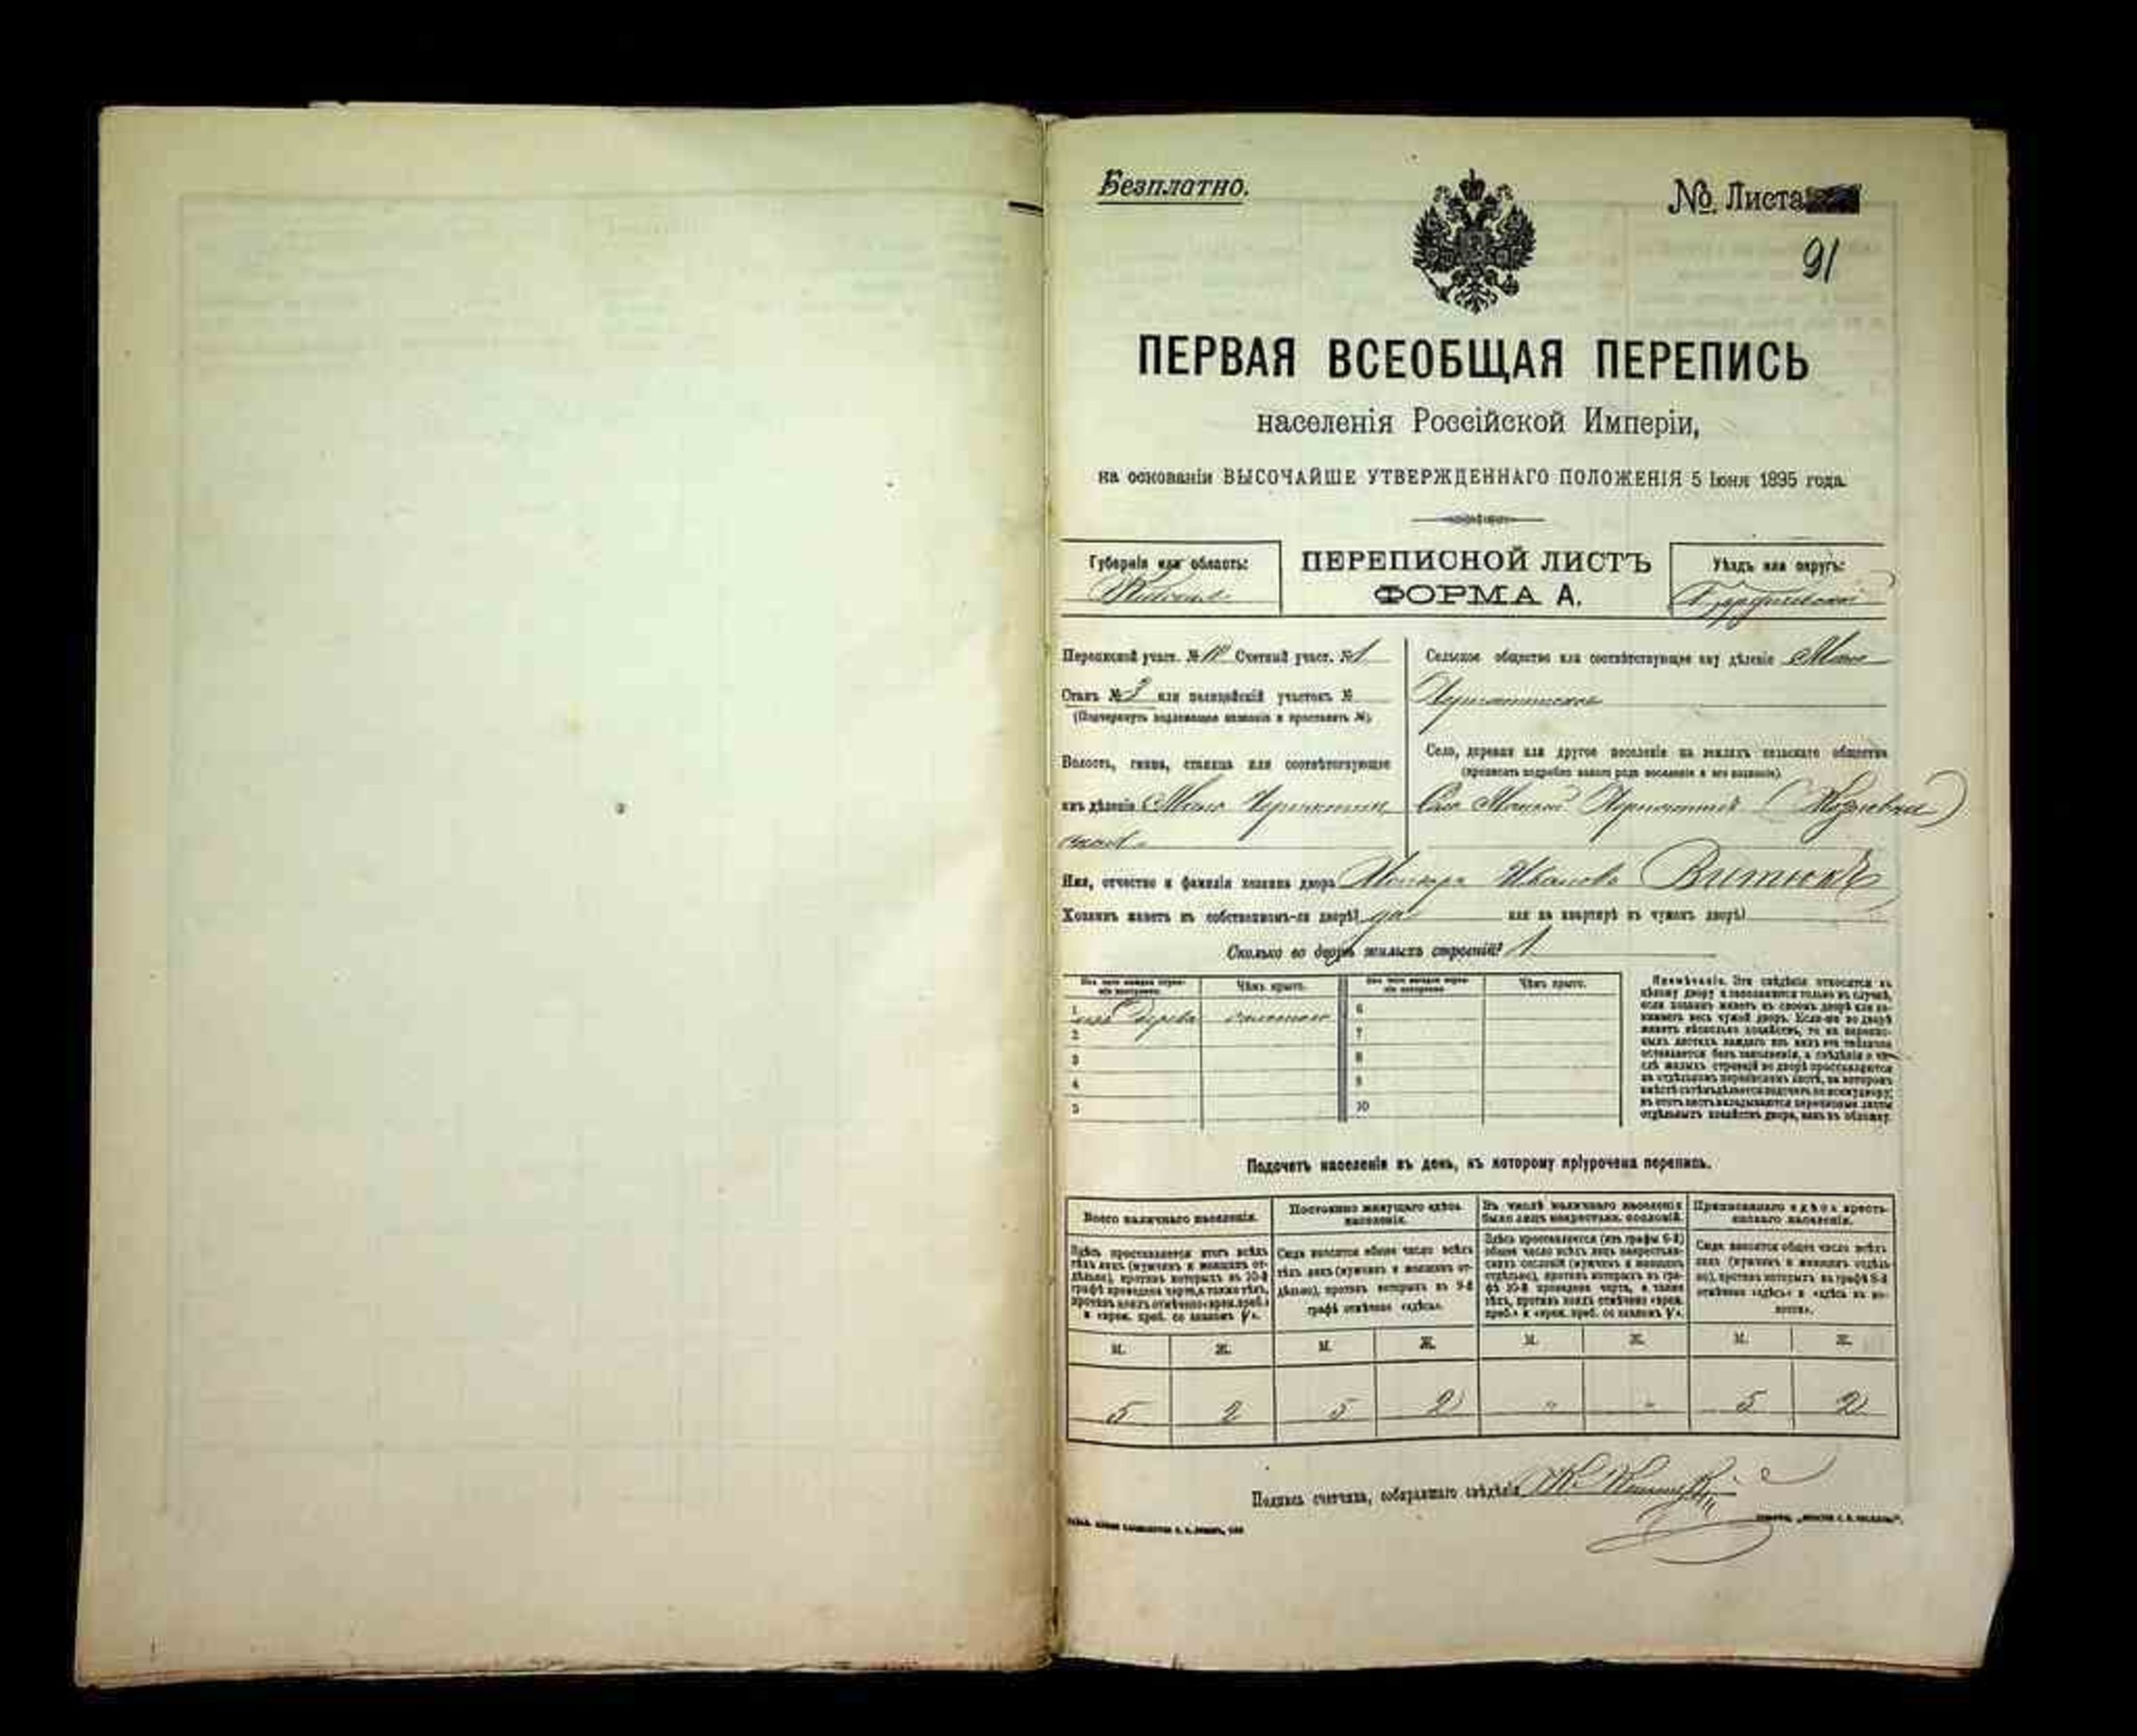 Безплатно.
№ Листа
91
ПЕРВАЯ ВСЕОБЩАЯ ПЕРЕПИСЬ
населенія Россійской Имперіи,
на основаніи ВЫСОЧАЙШЕ УТВЕРЖДЕННАГО ПОЛОЖЕНІЯ 5 Іюня 1895 года.
Губернія или область:
Кіевская
ПЕРЕПИСНОЙ ЛИСТЪ
ФОРМА А.
Уѣздъ или округъ:
Бердичевскій
Переписной участ. № Счетный участ. № 1
Станъ № или полицейскій участокъ №
(Подчеркнуть подлежащее названіе и проставить №).
Сельское общество или соотвѣтствующее ему дѣленіе Мало
Чернятинское
Волость, гмина, станица или соотвѣтствующее
имъ дѣленіе Мало Чернятин
ская
Село, деревня или другое поселеніе на земляхъ сельскаго общества
(прописать подробно какого рода поселеніе и его названіе).
Село Малый Чернятинъ
Имя, отчество и фамилія хозяина двора Иванова Витюкъ
Хозяинъ живетъ въ собственномъ-ли дворѣ? да или на квартирѣ въ чужомъ дворѣ?
Сколько во дворѣ жилыхъ строеній? 1
Изъ чего каждое строеніе построено. Чѣмъ крыто. Изъ чего каждое строеніе построено. Чѣмъ крыто.
1 изъ дерева соломою 6
2 7
3 8
4 9
5 10
Примѣчаніе. Эти свѣдѣнія относятся къ
цѣлому двору и заполняются только въ случаѣ,
если хозяинъ живетъ въ своемъ дворѣ или за-
нимаетъ весь чужой дворъ. Если-же во дворѣ
живетъ нѣсколько хозяйствъ, то на перепис-
ныхъ листахъ каждаго изъ нихъ эта табличка
оставляется безъ заполненія, а свѣдѣнія о чи-
слѣ жилыхъ строеній во дворѣ проставляются
на отдѣльномъ переписномъ листѣ, на которомъ
вмѣстѣ съ тѣмъ дѣлается подсчетъ по всему двору;
въ этотъ листъ вкладываются переписные листы
отдѣльныхъ хозяйствъ двора, какъ въ обложку.
Подсчетъ населенія въ день, къ которому пріурочена перепись.
Всего наличнаго населенія.
Здѣсь проставляется итогъ всѣхъ
тѣхъ лицъ (мужчинъ и женщинъ от-
дѣльно), противъ которыхъ въ 10-й
графѣ проведена черта, а также тѣхъ,
противъ коихъ отмѣчено «врем. преб.»
и «врем. преб. со знакомъ V».
Постоянно живущаго здѣсь
населенія.
Сюда вносится общее число всѣхъ
тѣхъ лицъ (мужчинъ и женщинъ от-
дѣльно), противъ которыхъ въ 9-й
графѣ отмѣчено «здѣсь».
Въ числѣ наличнаго населенія
было лицъ некрестьян. сословій.
Здѣсь проставляется (изъ графы 6-й)
общее число всѣхъ лицъ некрестьян-
скихъ сословій (мужчинъ и женщинъ
отдѣльно), противъ которыхъ въ гра-
фѣ 10-й проведена черта, а также
тѣхъ, противъ коихъ отмѣчено «врем.
преб.» и «врем. преб. со знакомъ V».
Приписаннаго здѣсь кресть-
янскаго населенія.
Сюда вносится общее число всѣхъ
лицъ (мужчинъ и женщинъ отдѣль-
но), противъ которыхъ въ графѣ 8-й
отмѣчено «здѣсь» и «здѣсь въ во-
лости».
М. Ж. М. Ж. М. Ж. М. Ж.
5 2 5 2 " " 5 2
Подпись счетчика, собиравшаго свѣдѣнія